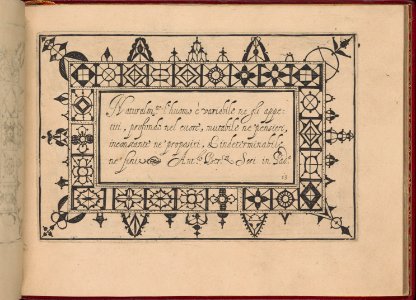 Naturalm.te l'huomo è variabile ne gli appe-
titi, profondo nel cuore, mutabile ne' pensieri,
incostante ne' propositi, & indeterminabile
ne' fini. Ant.o Scri. in Pad.a
13